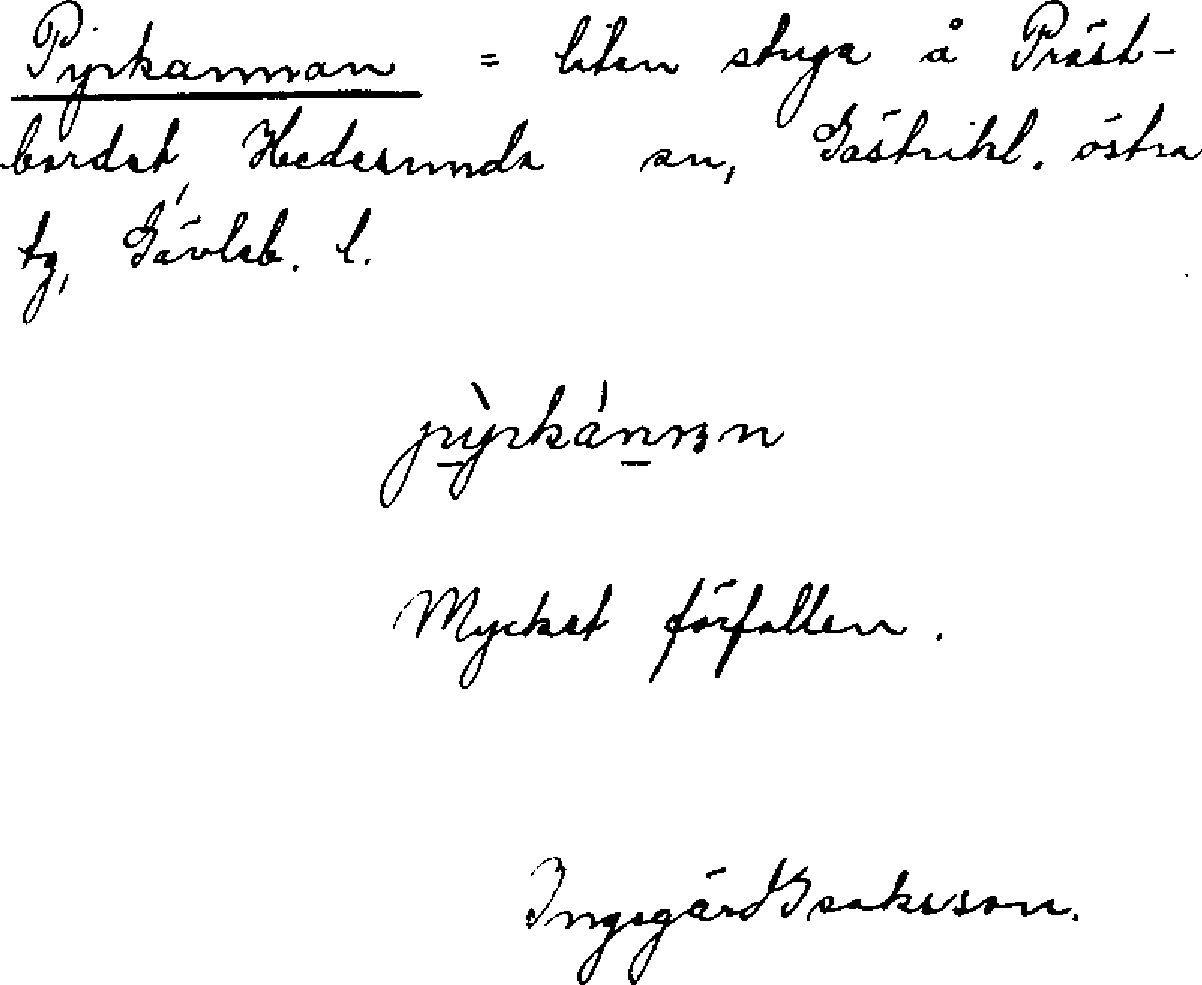 Pyrkannan = liten stuga å Präst-
bordet, Hedesunda sn, Gästrikl. östra
tg, Gävleb. l.
Mycket förfallen.
Ingegärd Isaksson.